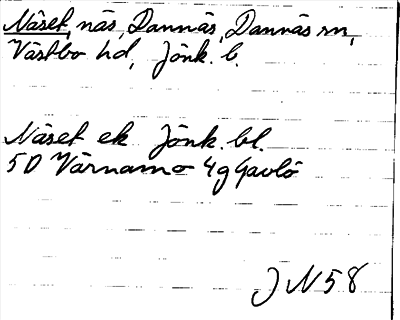 Näset, näs, Dannäs, Dannäs sn,
Västbo hd, Jönk. l.
Näset ek Jönk. bl.
5D Värnamo 4g Gavlö
JN58